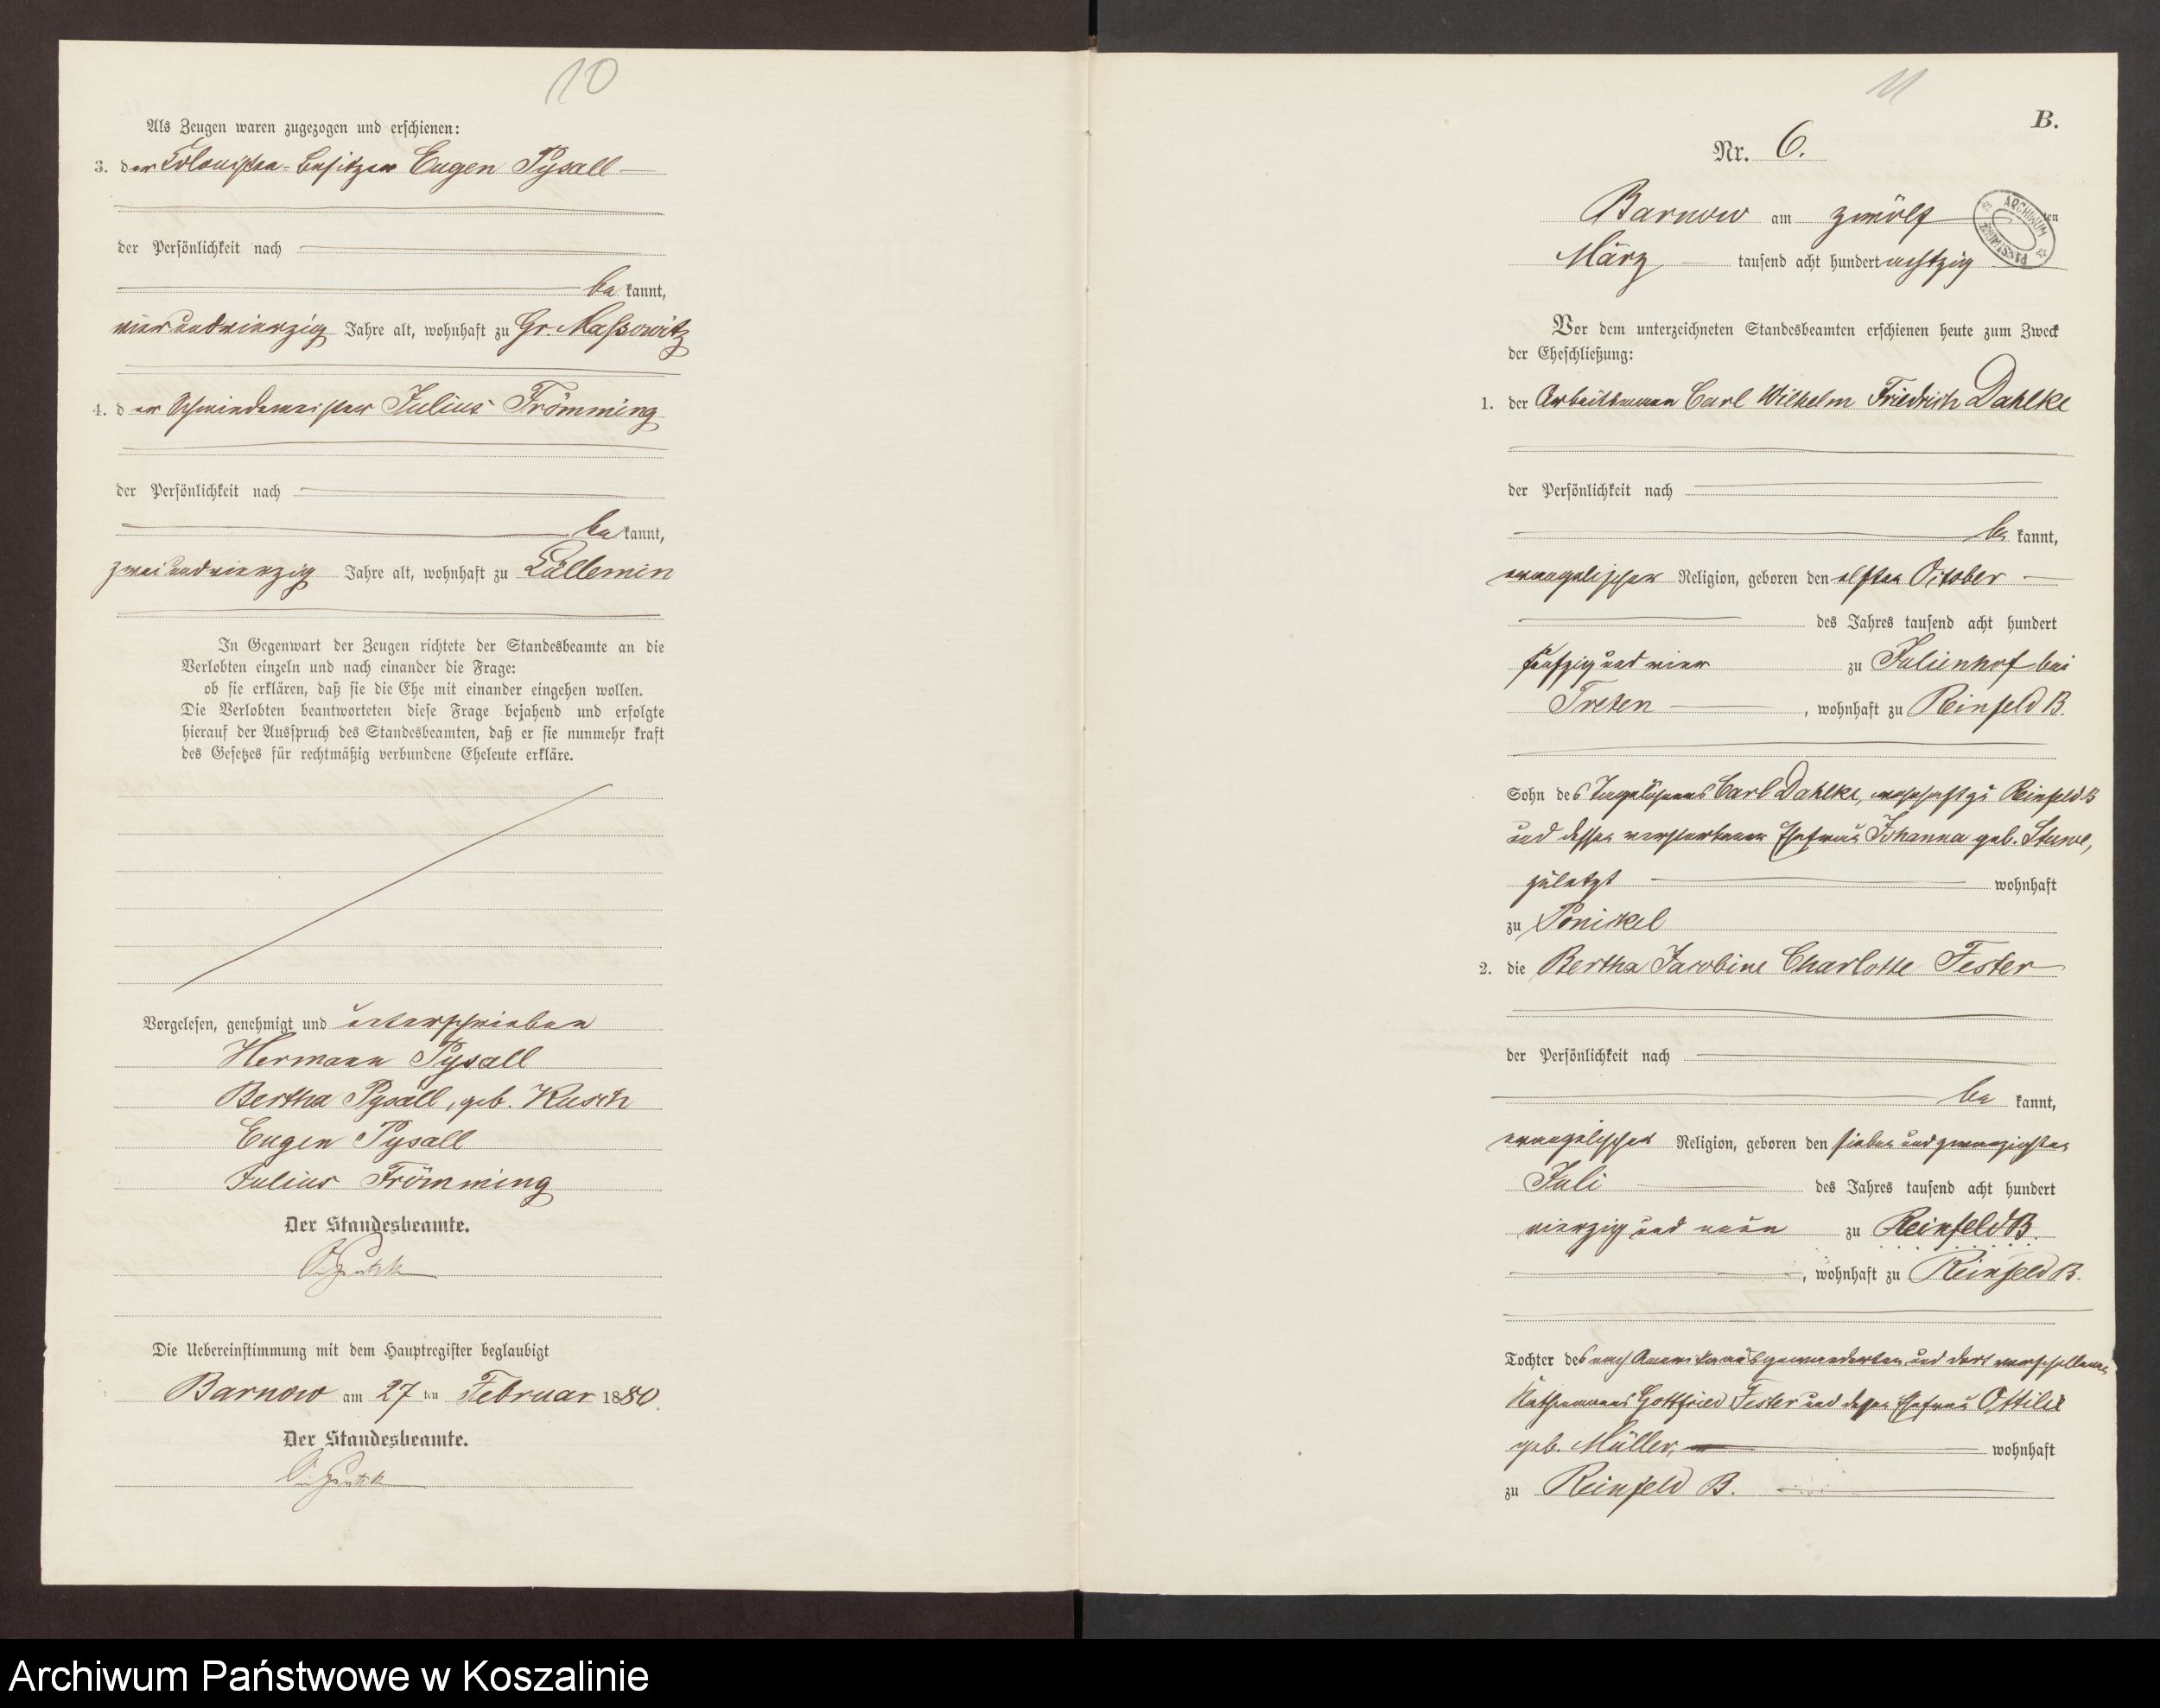 10
Als Zeugen waren zugezogen und erschienen:
3. der Colonisten-Besitzer Eugen Pysall
der Persönlichkeit nach
bekannt,
vierundvierzig Jahre alt, wohnhaft zu Gr. Massowitz
4. der Schmiedemeister Julius Frömming
der Persönlichkeit nach
bekannt,
zweiundvierzig Jahre alt, wohnhaft zu Lüllemin
In Gegenwart der Zeugen richtete der Standesbeamte an die
Verlobten einzeln und nach einander die Frage:
ob sie erklären, daß sie die Ehe mit einander eingehen wollen.
Die Verlobten beantworteten diese Frage bejahend und erfolgte
hierauf der Ausspruch des Standesbeamten, daß er sie nunmehr kraft
des Gesetzes für rechtmäßig verbundene Eheleute erkläre.
Vorgelesen, genehmigt und unterschrieben
Hermann Pysall
Bertha Pysall, geb. Kusch
Eugen Pysall
Julius Frömming
Der Standesbeamte.
Die Uebereinstimmung mit dem Hauptregister beglaubigt
Barnow am 27 ten Februar 1880.
Der Standesbeamte.
11
B.
Nr. 6.
Barnow am zwölf ten
März tausend acht hundert achtzig
ARCHIWUM PAŃSTWOWE
Vor dem unterzeichneten Standesbeamten erschienen heute zum Zweck
der Eheschließung:
1. der Arbeitsmann Carl Wilhelm Friedrich Dahlke
der Persönlichkeit nach
bekannt,
evangelischer Religion, geboren den elften October
des Jahres tausend acht hundert
fünfzig und vier zu Julienhof bei
Treten, wohnhaft zu Reinfeld B.
Sohn des Tagelöhners Carl Dahlke, wohnhaft zu Reinfeld B
und dessen verstorbenen Ehefrau Johanna geb. Stuwe,
zuletzt wohnhaft
zu Ponickel
2. die Bertha Jacobine Charlotte Fester
der Persönlichkeit nach
bekannt,
evangelischer Religion, geboren den sieben und zwanzigsten
Juli des Jahres tausend acht hundert
vierzig und neun zu Reinfeld B.
, wohnhaft zu Reinfeld B.
Tochter des nach Amerika ausgewanderten und dort verschollenen
Käthnermanns Gottfried Fester und dessen Ehefrau Ottilie
geb. Müller, wohnhaft
zu Reinfeld B.
Archiwum Państwowe w Koszalinie